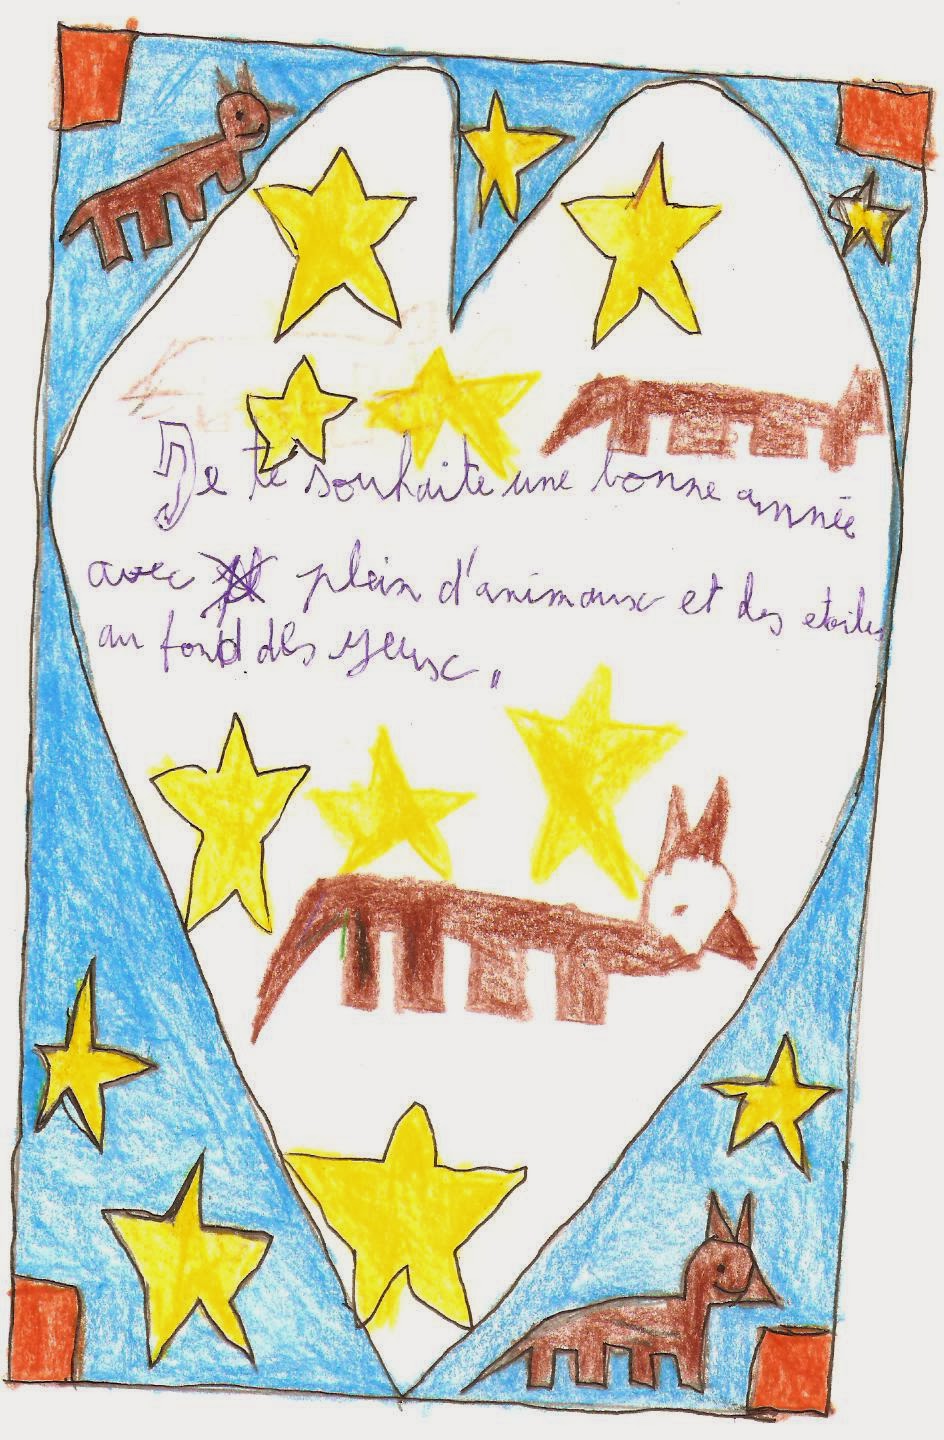 Je te souhaite une bonne année
avec plein d'animaux et des etoiles
au fond des yeux.